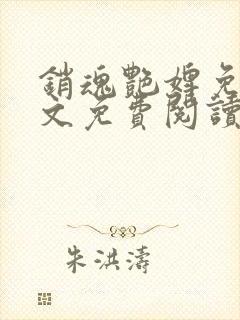 銷魂艷婢免
文免費閱讀
朱洪濤